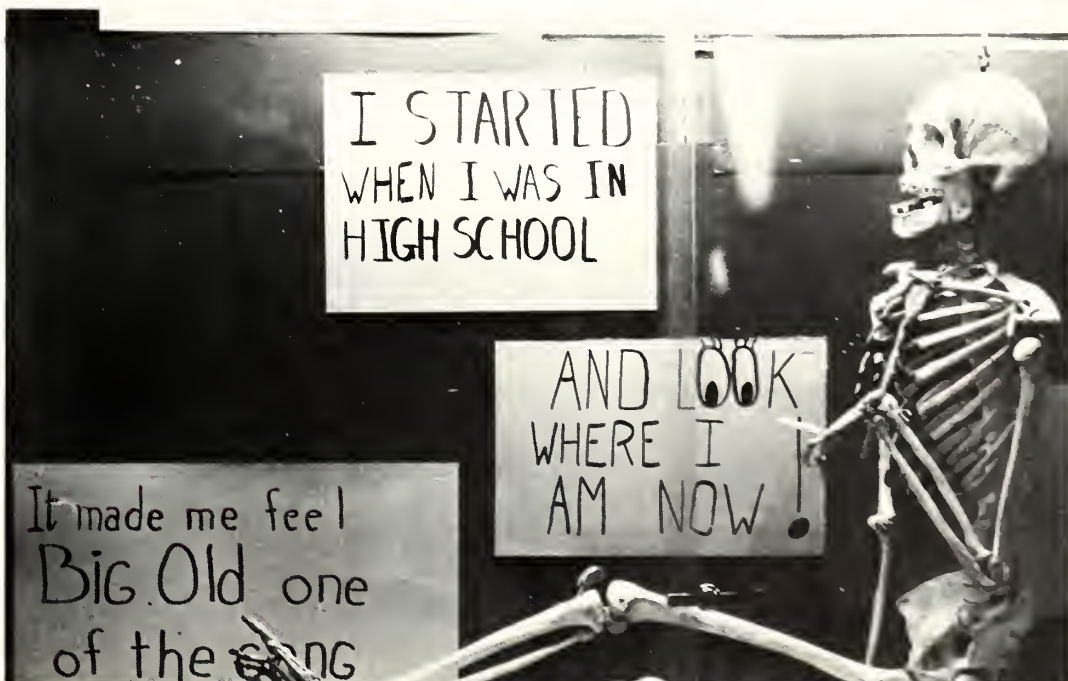 I STARTED
WHEN I WAS IN
HIGH SCHOOL
AND LOOK
WHERE I
AM NOW!
It made me feel
BiG. Old one
of the